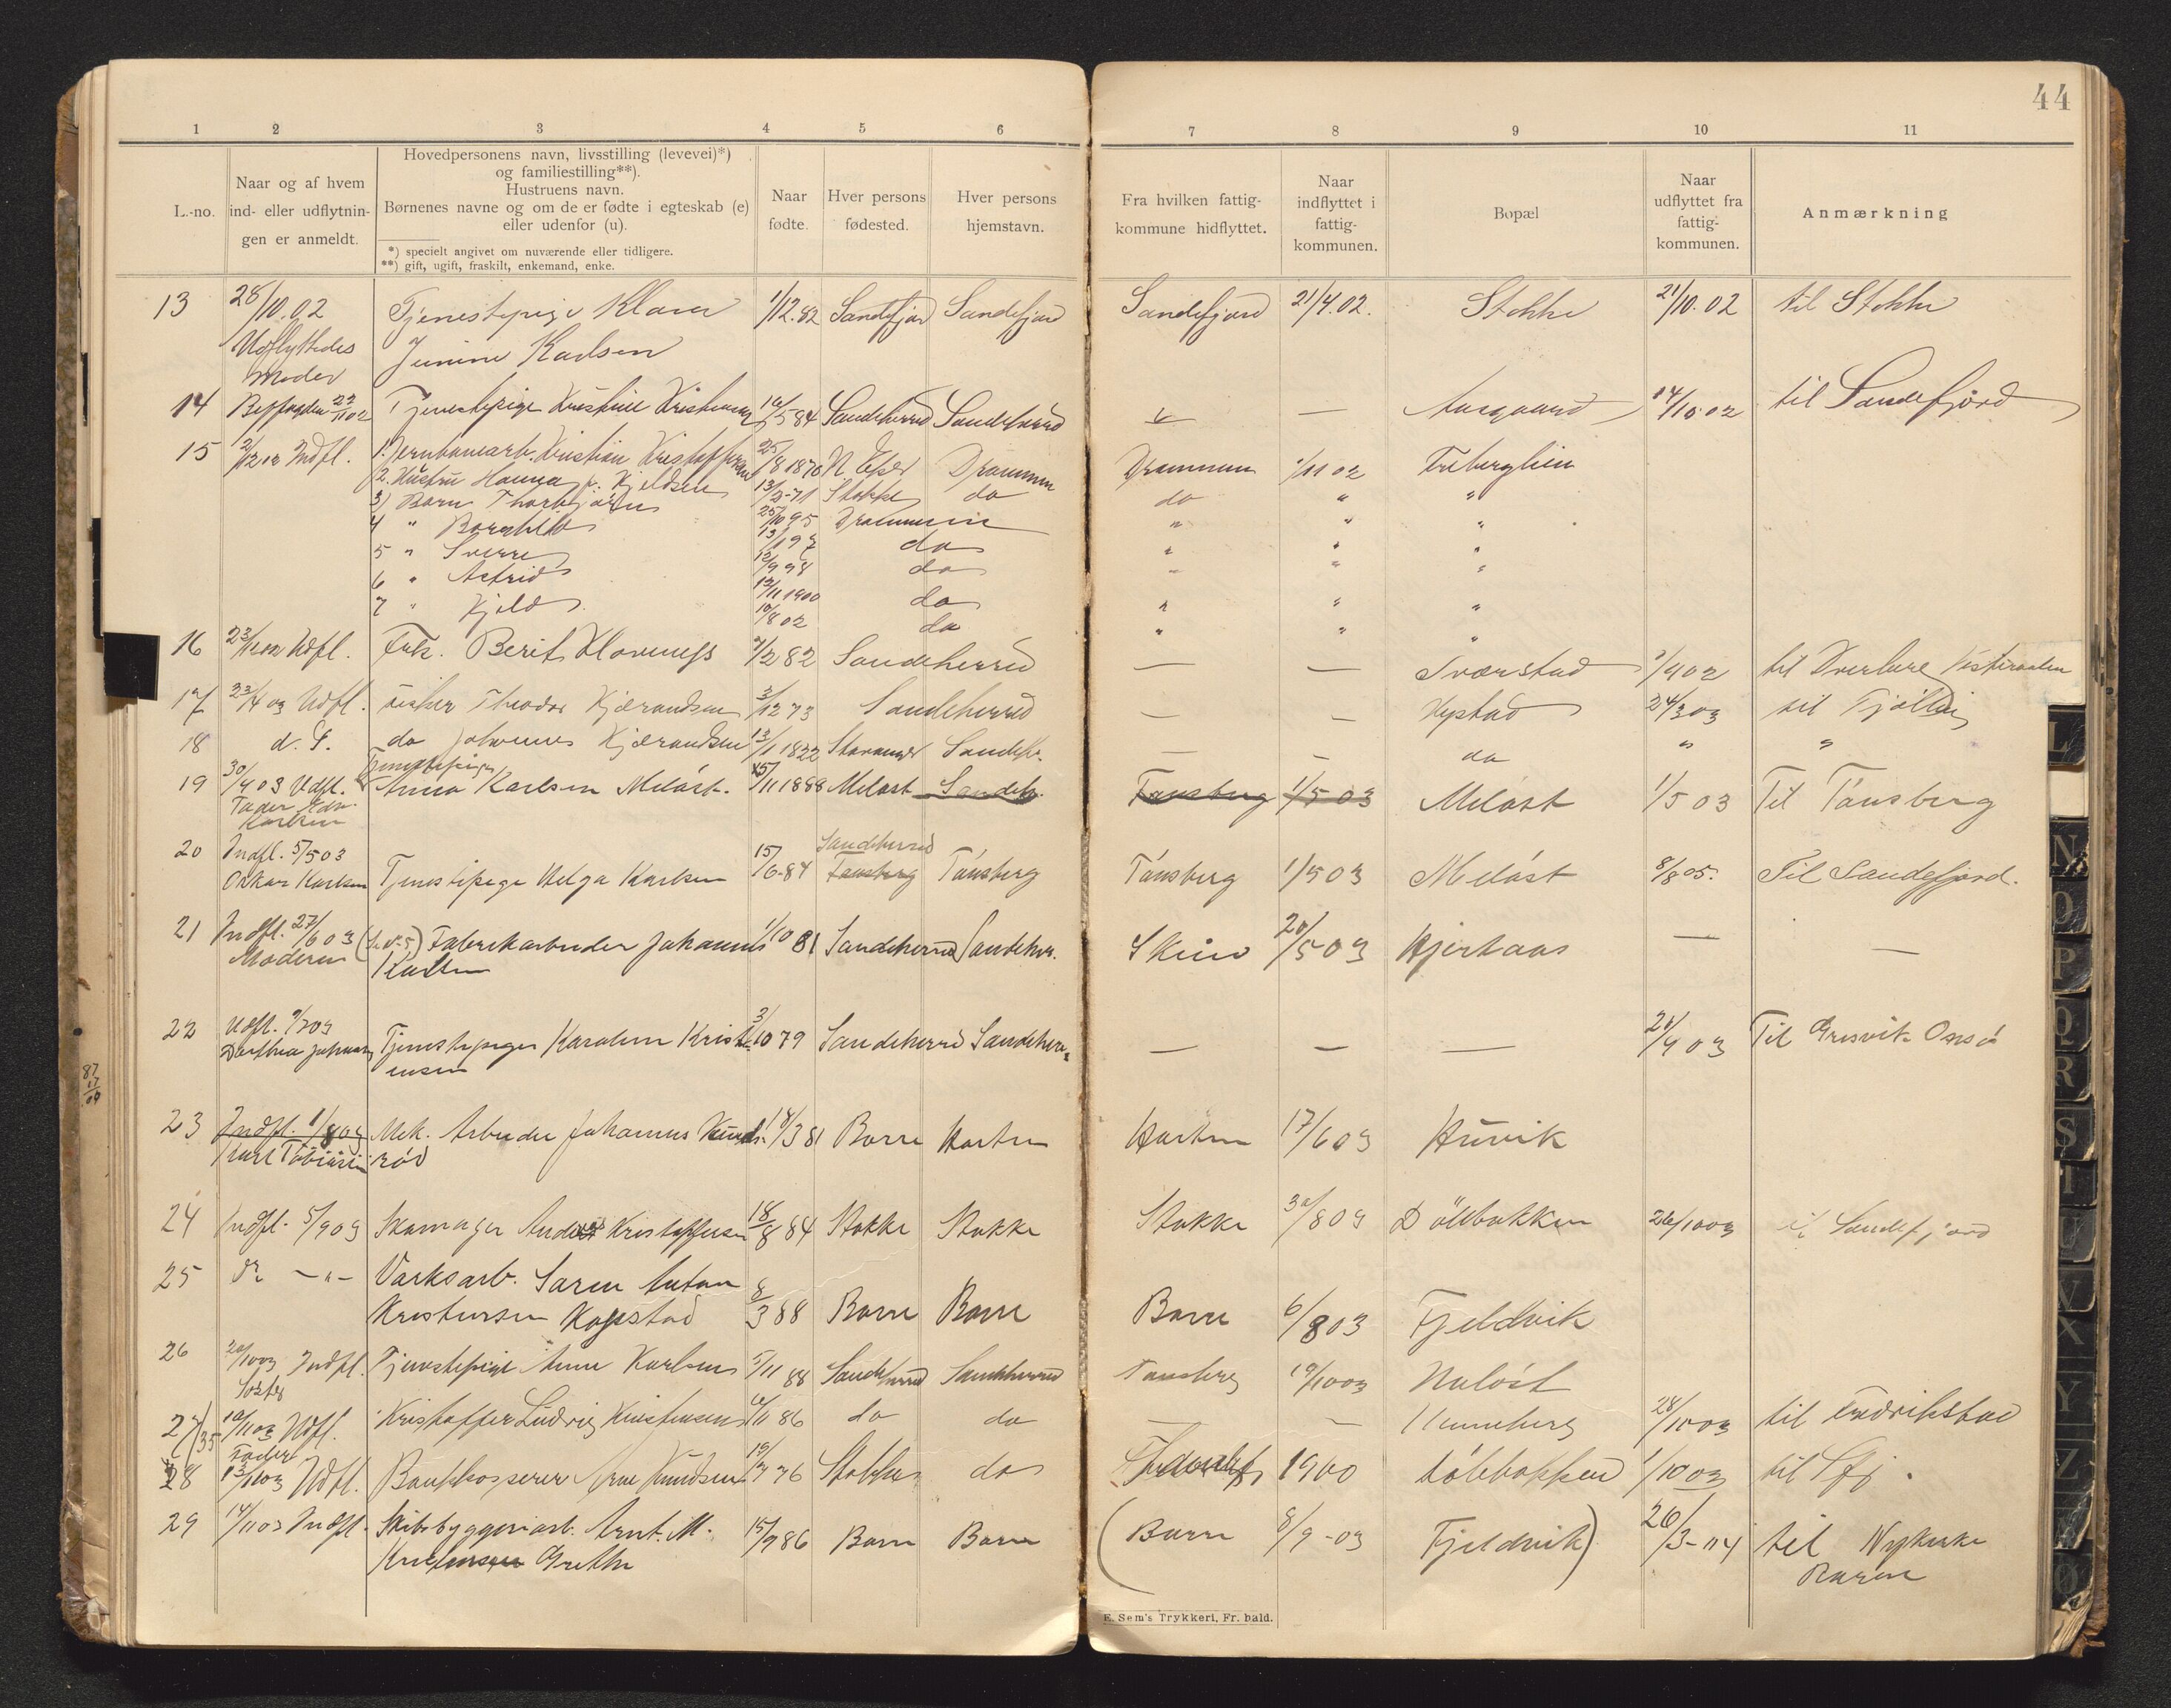 44
1 2 3 4 5 6 7 8 9 10 11
L.-no.
Naar og af hvem
ind- eller udflytnin-
gen er anmeldt.
Hovedpersonens navn, livsstilling (levevei)*)
og familiestilling**).
Hustruens navn.
Børnenes navne og om de er fødte i egteskab (e)
eller udenfor (u).
*) specielt angivet om nuværende eller tidligere.
**) gift, ugift, fraskilt, enkemand, enke.
Naar
fødte.
Hver persons
fødested.
Hver persons
hjemstavn.
Fra hvilken fattig-
kommune hidflyttet.
Naar
indflyttet i
fattig-
kommunen.
Bopæl
Naar
udflyttet fra
fattig-
kommunen.
Anmærkning
13 28/10.02 Tjenestepige Klara 1/12.82 Sandefjord Sandefjord Sandefjord 21/4.02. Stokke 21/10.02 til Stokke
Udflyttedes Junine Karlsen
Moder
14 22/11 02 Tjenestepige Kristine Kristensen 16/5 84 Sandeherred Sandeherred — Aasgaard 14/10 02 til Sandefjord
15 Indfl. 1. Jernbanearb. Kristian Kristoffersen 25/8 1870 N Eker Drammen Drammen 1/11 02 Freberglien
2. Hustru Hanna f. Kjeldsen 13/2-71 Stokke do do " "
3) Barn Thorbjørn 25/10 95 Drammen " " "
4 " Borghild 13/1 97 do " " "
5 " Sverre 12/9 98 do " " "
6 " Astrid 12/11 1900 do " " "
7 " Kjeld 10/8 02 do " " "
16 Udfl. Frk. Berit Klavenæs 2/2 82 Sandeherred — — Sværstad 1/9 02 til
17 23/4 03 Udfl. Theodor Kjærandsen 3/12 73 Sandeherred — — Nystad 24/3 03 til Tjølling
18 d. S. do Johannes Kjærandsen 13/1 1822 Stavanger Sandeh. — — do " "
19 30/4 03 Udfl. Tjenestepige
Anna Karlsen Meløst. 15/11 1888 Meløst Sandeh. Tønsberg 1/5 03 Meløst 1/5 03 Til Tønsberg
Fader Edv.
Karlsen
20 Indfl. 5/5 03 Sandeherred
Oskar Karlsen Tjenestepige Helga Karlsen 15/6-84 Tønsberg Tønsberg Tønsberg 1/5 03 Meløst 8/8 05. Til Sandefjord.
21 Indfl. 27/6 03 Fabrikarbeider Johannes 1/10 81 Sandeherred Sandeher. Skien 20/5 03 Hjertaas — —
Moderen Karlsen
22 Udfl. 9/7 03
Dorthea Johansen Tjenestepige Karoline Krist- 3/10 79 Sandeherred Sandeher. — — — 21/4 03 Til Gresvik Onsø
ensen
23 Indfl. 1/8 03 Mek. Arbeider Johannes Knuds- 18/3 81 Borre Horten Horten 17/6 03 Huvik
Karl Tobiasen rød
24 Indfl. 5/9 03 Skomager Anders Kristoffersen 18/8 84 Stokke Stokke Stokke 30/8 03 Dølebakken 26/10 03 til Sandefjord
25 do —"— Værksarb. Søren Anton
Kristensen Kopstad 8/3 88 Borre Borre Borre 6/8 03 Fjeldvik
26 20/10 03 Indfl. Tjenestepige Anna Karlsen 5/11 88 Sandeherred Sandeherred Tønsberg 19/10 03 Meløst
Søster
27/35 10/11 03 Udfl. Kristoffer Ludvig Kristensen 6/11 86 do do — — Unneberg 28/10 03 til Fredrikstad
Fader
28 13/11 03 Udfl. Arne Knudsen 19/7 76 Stokke do 1900 Dølebakken 1/10 03 til Sfj.
29 14/11 03 Indfl. Skibsbyggeriarb. Arnt. M. 15/9 86 Borre Borre (Borre 8/9-03 Fjeldvik) 26/3-04 til Nykirke
Kristensen Grette Borre
87
17
04
L N O P Q R S T U V X Y Z Æ Ø
E. Sem's Trykkeri, Fr. hald.